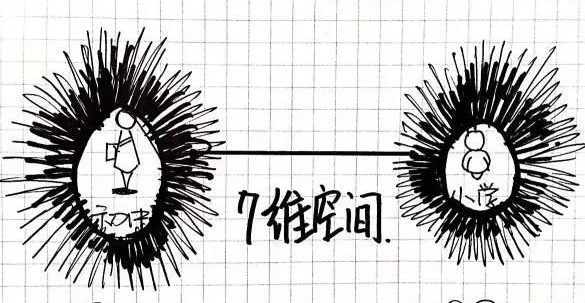 初中
7维空间.
小学